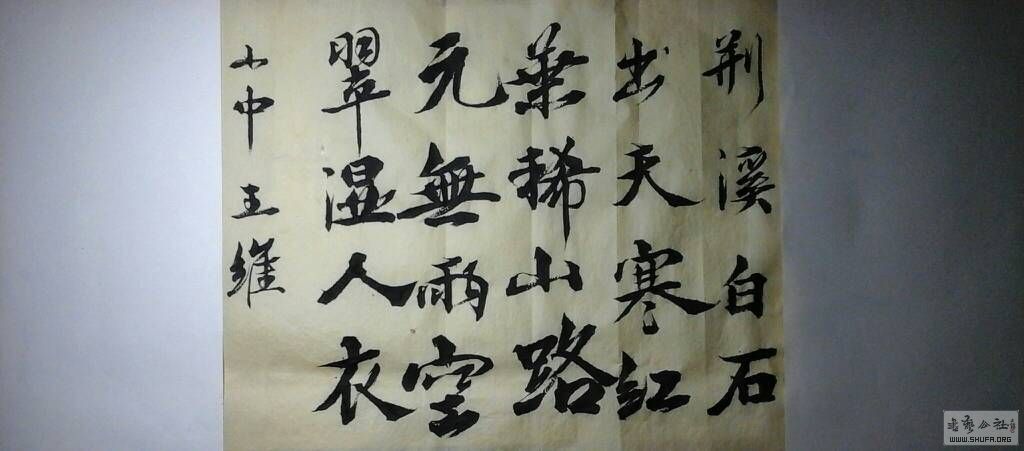 荆溪白石
出天寒红
葉稀山路
元無雨空
翠濕人衣
山中 王維
WWW.SHUFA.ORG